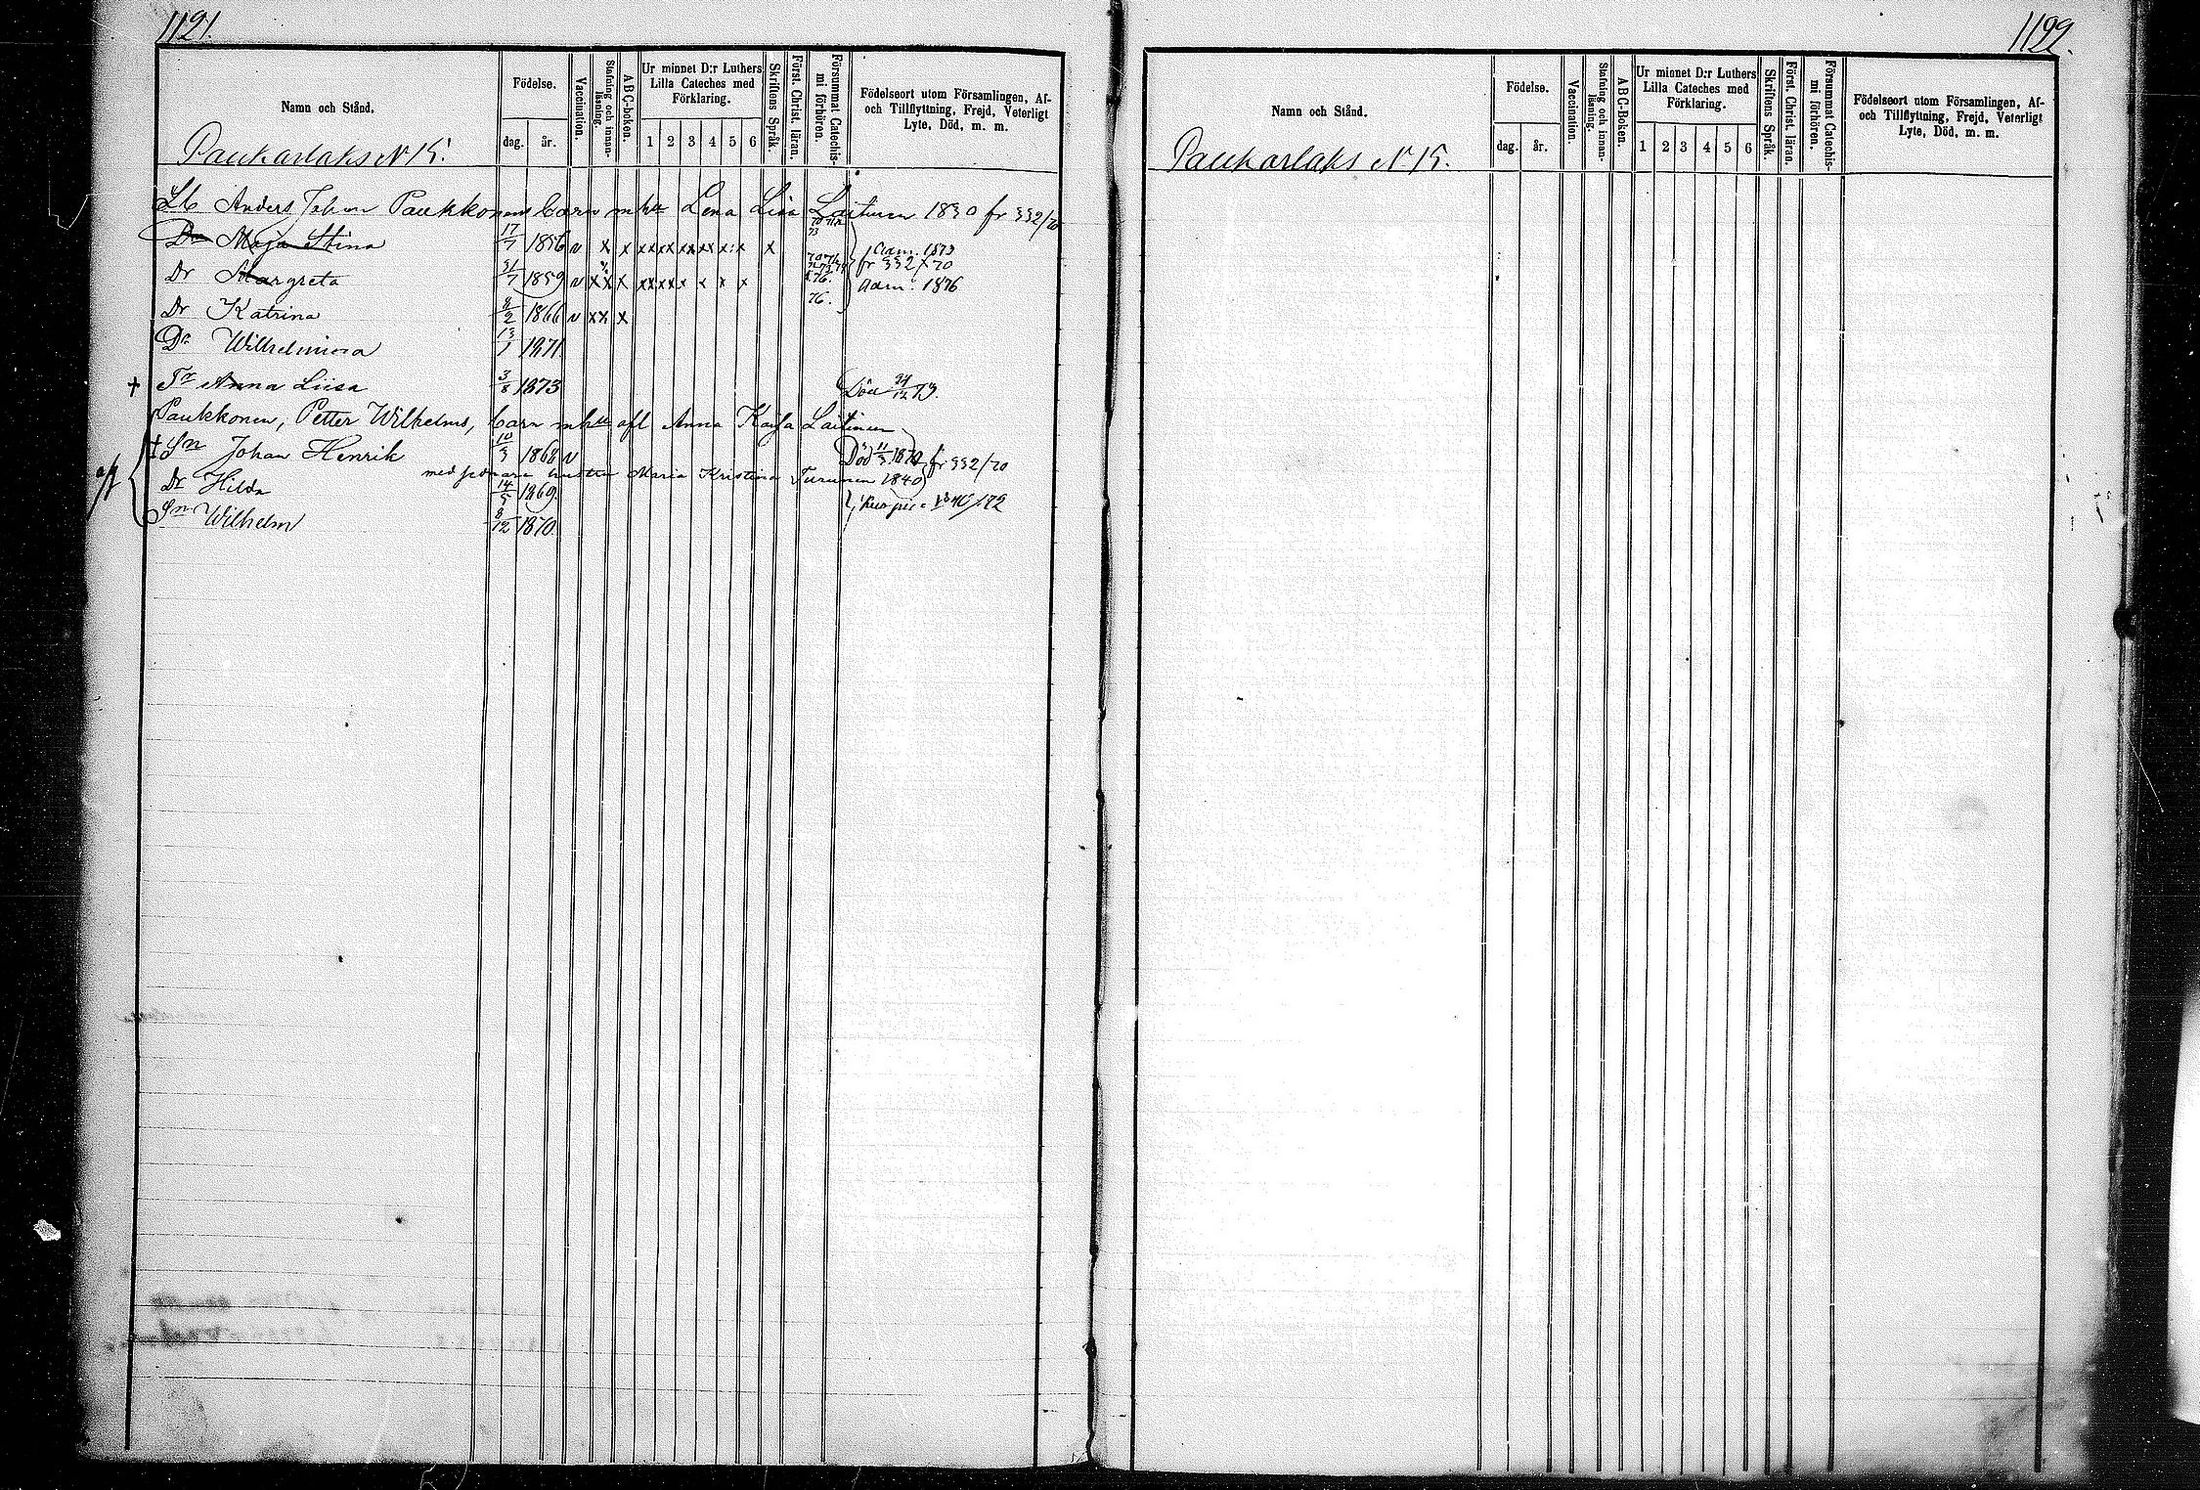 1121.
Namn och Stånd.
Födelse.
dag. år.
Vaccination.
Stafning och innan-
läsning.
A B C-boken.
Ur minnet D:r Luthers
Lilla Cateches med
Förklaring.
1 2 3 4 5 6
Skriftens Språk.
Först. Christ. läran.
Försummat Catechis-
mi förhören.
Födelseort utom Församlingen, Af-
och Tillflyttning, Frejd, Veterligt
Lyte, Död, m. m.
Paukarlaks N 15.
Lb Anders Johan Paukkonens barn m hu Lena Lisa Laitinen 1830 fr 332/70
Dr Maja Stina 17/7 1856 v x x xx xx xx x x x x Adm. 1873
Dr Margreta 31/7 1859 v x x x xx xx x x x x 76. fr 332/70
Adm. 1876
Dr Katrina 8/2 1866 v x x x 76.
Dr Wilhelmina 13/1 1871.
+ Dr Anna Liisa 3/8 1873 Död 24/12 73.
Paukkonen, Petter Wilhelms, barn m hu afl Anna Kajsa Laitinen
+ Sn Johan Henrik 10/3 1868 v Död 11/3 1870 fr 332/70
med sednare hustrun Maria Kristina Turunen 1840
Dr Hilda 14/5 1869.
Sn Wilhelm 8/12 1870.
1122.
Namn och Stånd.
Födelse.
dag. år.
Vaccination.
Stafning och innan-
läsning.
A B C-Boken.
Ur minnet D:r Luthers
Lilla Cateches med
Förklaring.
1 2 3 4 5 6
Skriftens Språk.
Först. Christ. läran.
Försummat Catechis-
mi förhören.
Födelseort utom Församlingen, Af-
och Tillflyttning, Frejd, Veterligt
Lyte, Död, m. m.
Paukarlaks N 15.